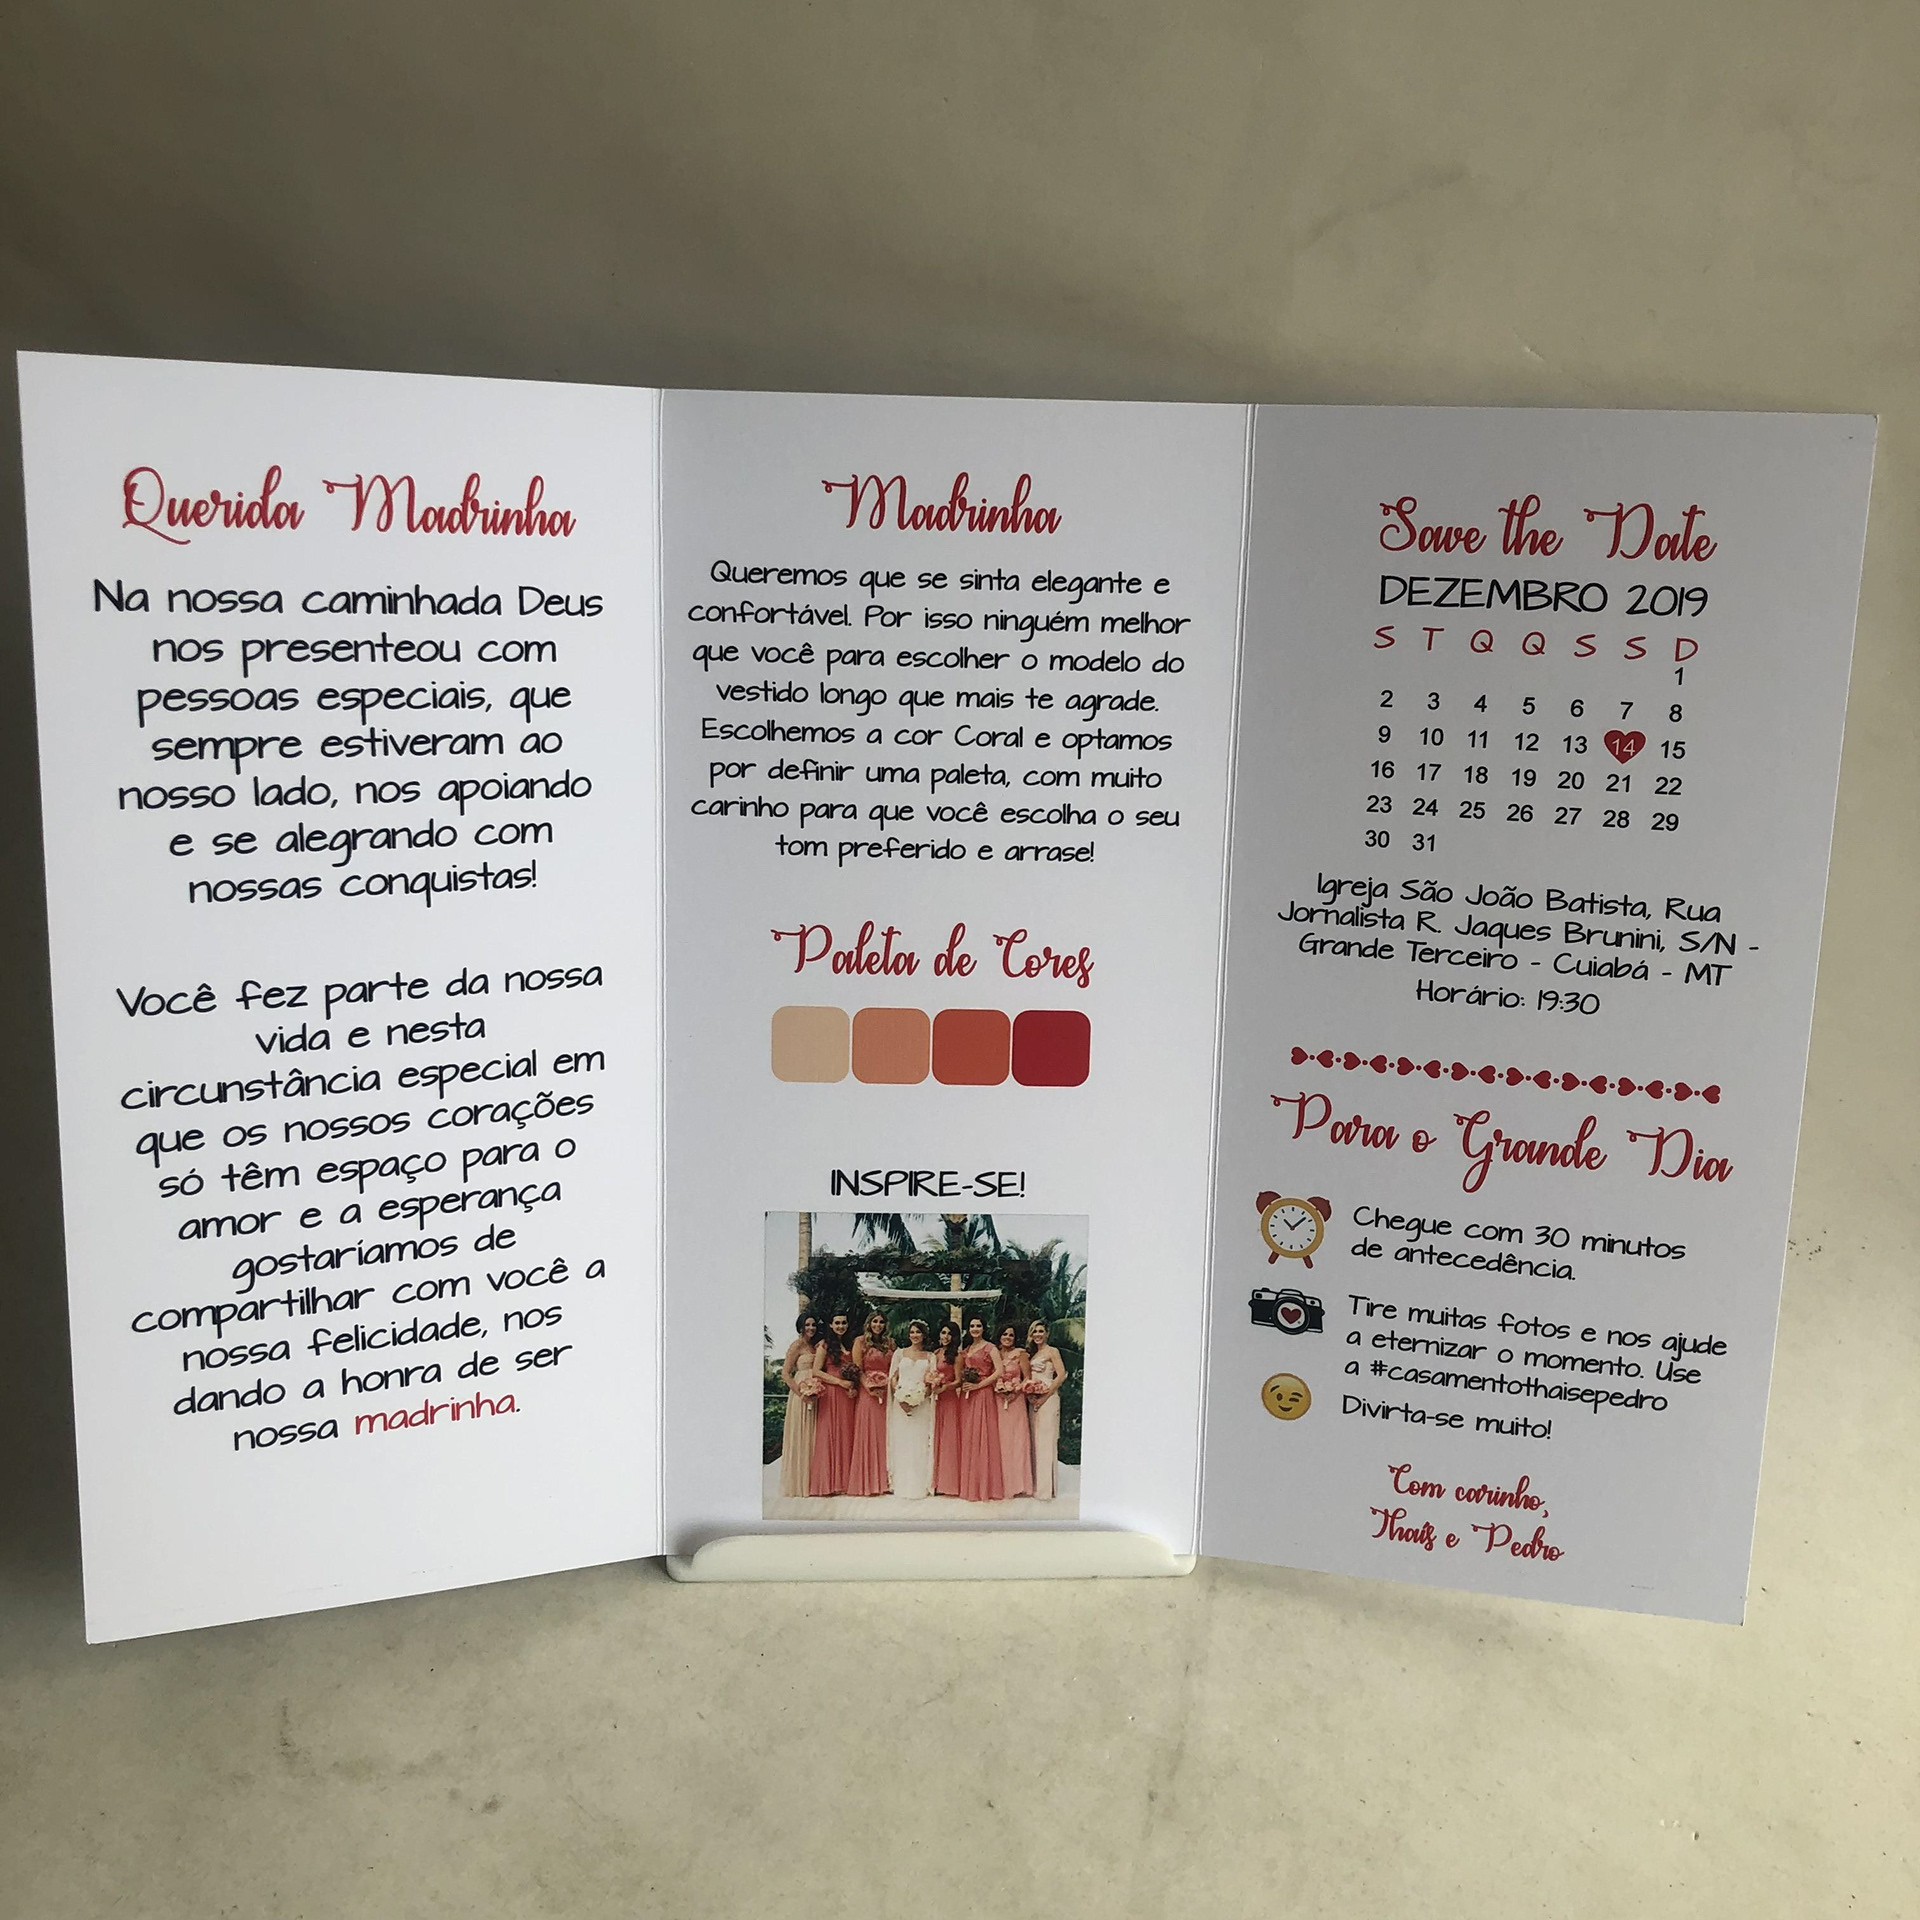 Querida Madrinha
Na nossa caminhada Deus
nos presenteou com
pessoas especiais, que
sempre estiveram ao
nosso lado, nos apoiando
e se alegrando com
nossas conquistas!
Você fez parte da nossa
vida e nesta
circunstância especial em
que os nossos corações
só têm espaço para o
amor e a esperança
gostaríamos de
compartilhar com você a
nossa felicidade, nos
dando a honra de ser
nossa madrinha.
Madrinha
Queremos que se sinta elegante e
confortável. Por isso ninguém melhor
que você para escolher o modelo do
vestido longo que mais te agrade.
Escolhemos a cor Coral e optamos
por definir uma paleta, com muito
carinho para que você escolha o seu
tom preferido e arrase!
Paleta de Cores
INSPIRE-SE!
Save the Date
DEZEMBRO 2019
S T Q Q S S D
1
2 3 4 5 6 7 8
9 10 11 12 13 14 15
16 17 18 19 20 21 22
23 24 25 26 27 28 29
30 31
Igreja São João Batista, Rua
Jornalista R. Jaques Brunini, S/N -
Grande Terceiro - Cuiabá - MT
Horário: 19:30
Para o Grande Dia
Chegue com 30 minutos
de antecedência.
Tire muitas fotos e nos ajude
a eternizar o momento. Use
a #casamentothaisepedro
Divirta-se muito!
Com carinho,
Thaís e Pedro